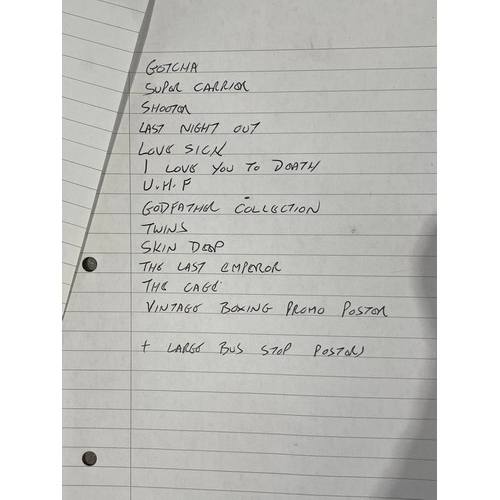 GOTCHA
SUPER CARRIER
SHOOTER
LAST NIGHT OUT
LOVE SICK
I LOVE YOU TO DEATH
U.H.F
GODFATHER COLLECTION
TWINS
SKIN DEEP
THE LAST EMPEROR
THE CAGE
VINTAGE BOXING PROMO POSTER
+ LARGE BUS STOP POSTERS